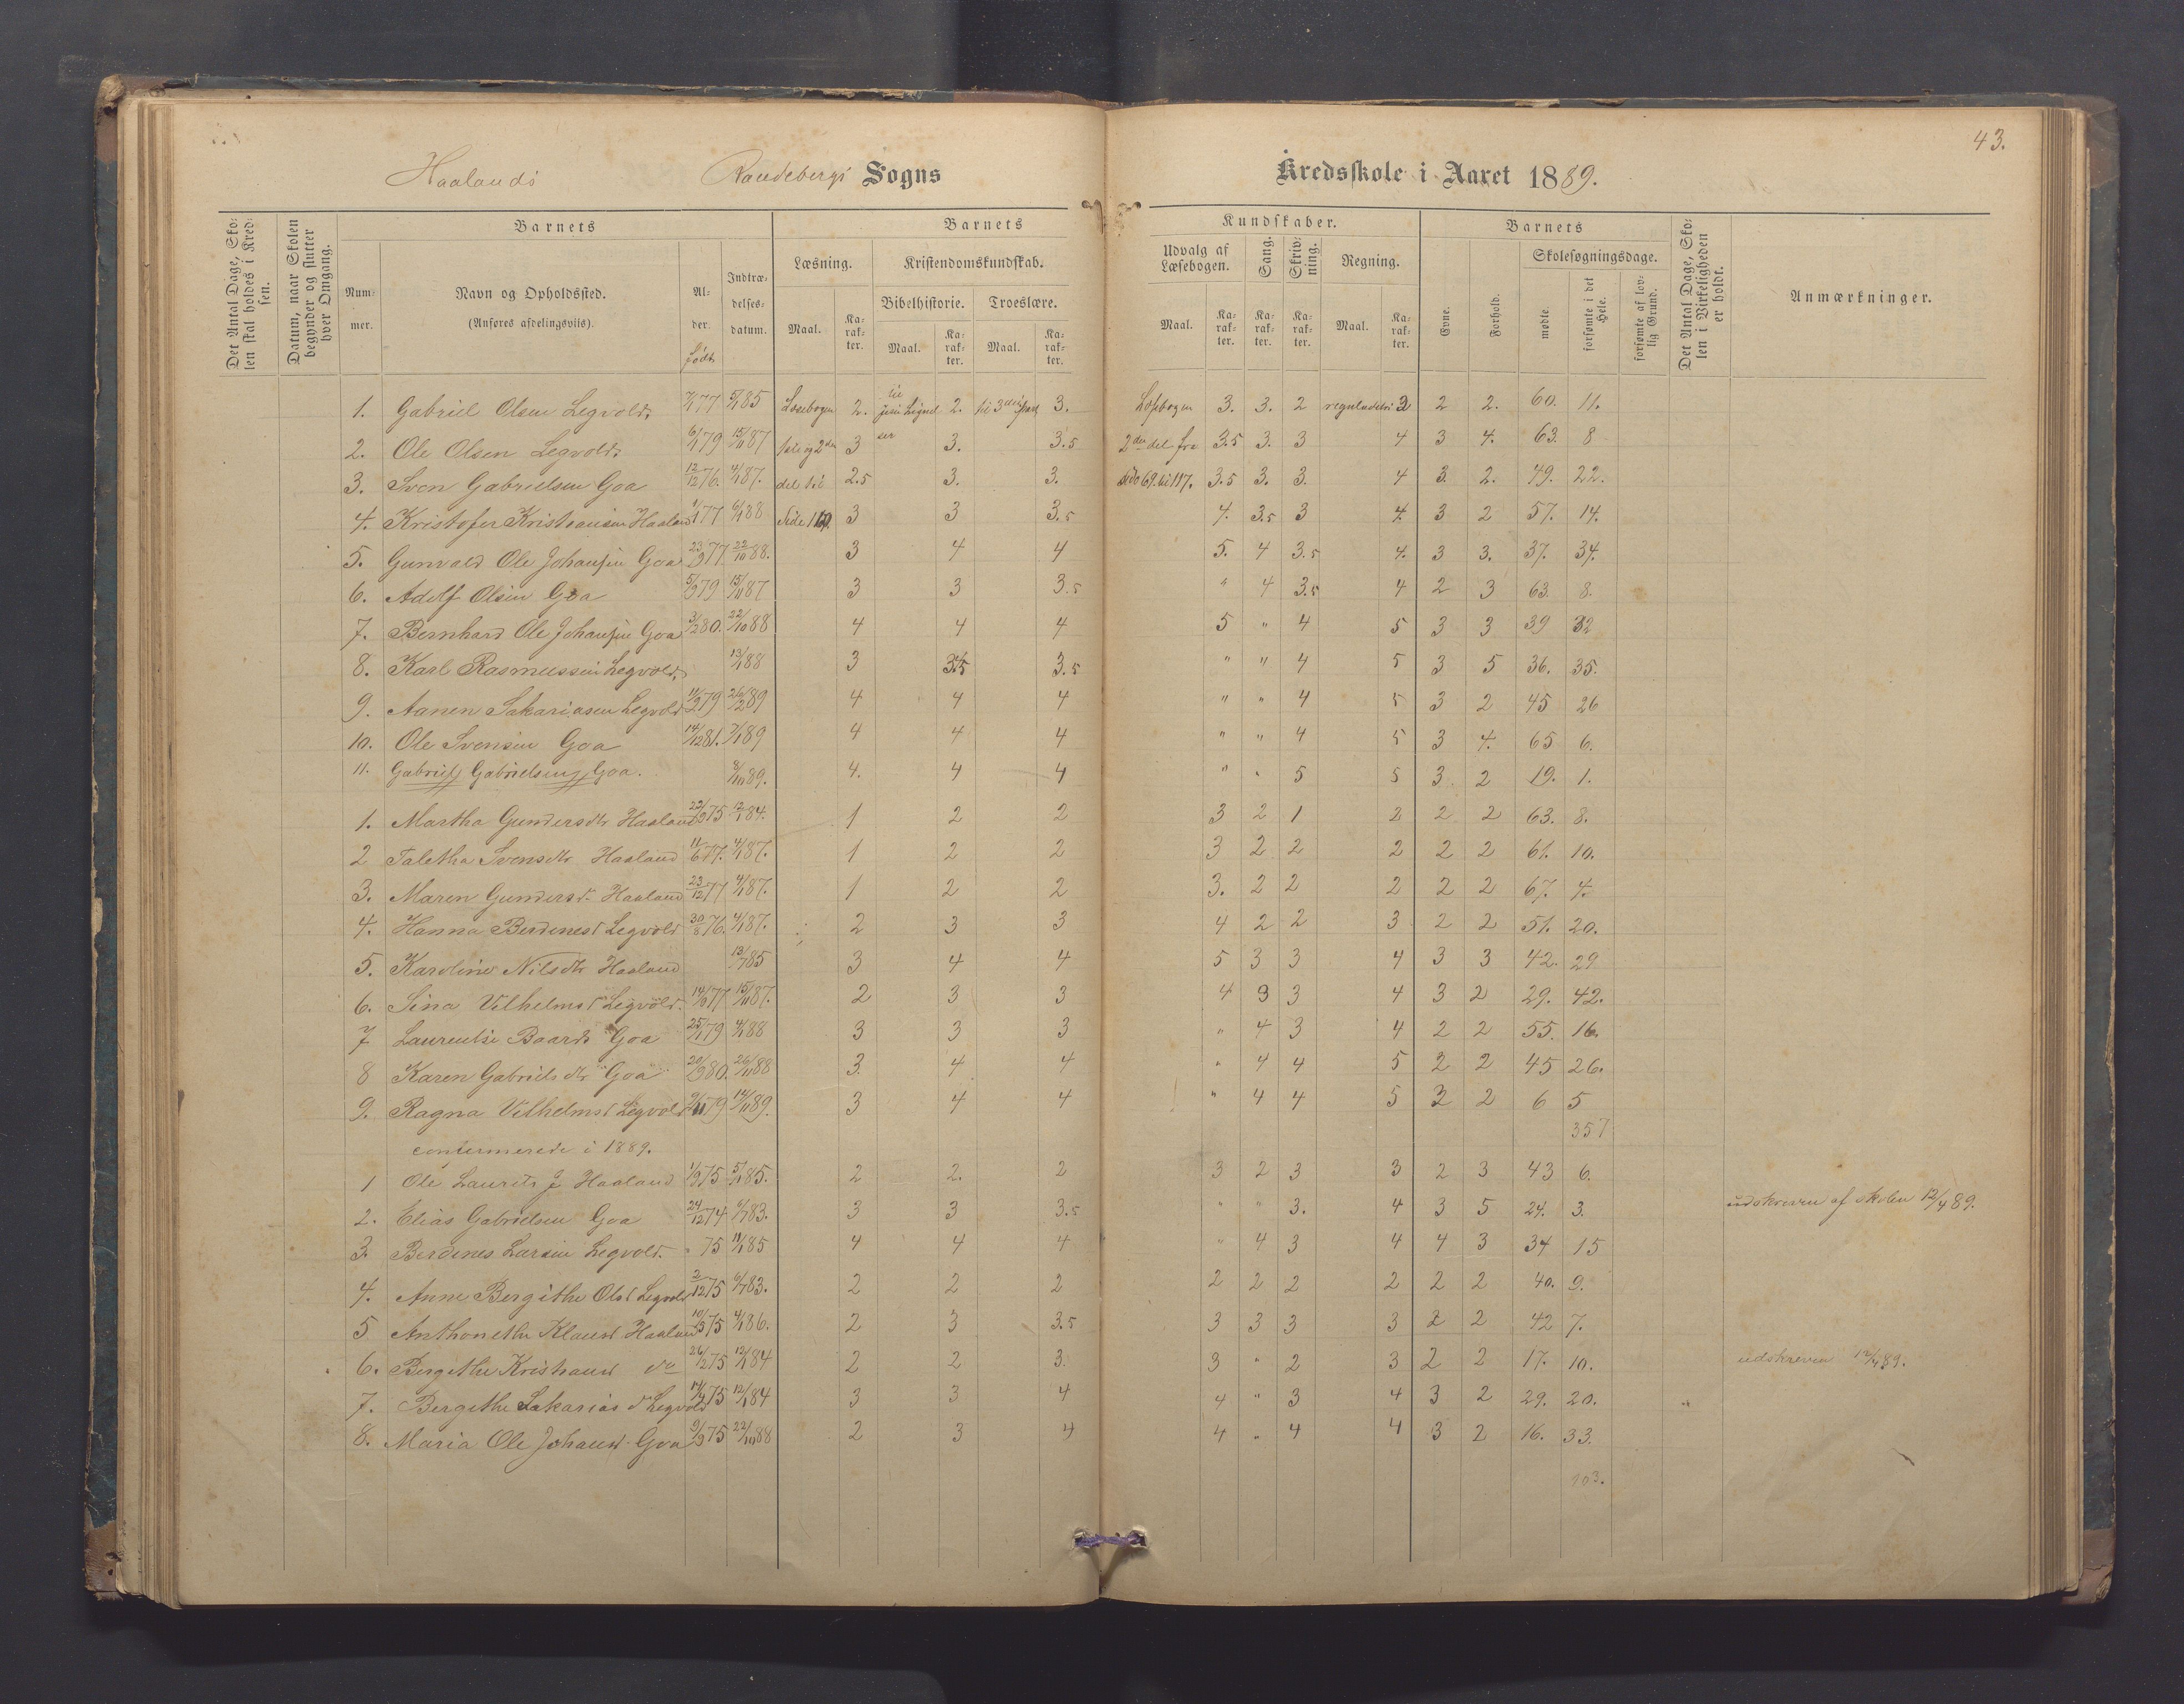 43.
Haalands Randebergs Sogns Kredsskole i Aaret 1889.
Det Antal Dage, Skolen skal holdes i Kredsen.
Datum, naar Skolen begynder og slutter hver Omgang.
Barnets
Barnets
Kundskaber.
Barnets
Nummer.
Navn og Opholdssted.
(Anføres afdelingsviis).
Alder.
født
Indtrædelsesdatum.
Læsning.
Kristendomskundskab.
Bibelhistorie.
Troeslære.
Maal.
Karakter.
Maal.
Karakter.
Maal.
Karakter.
Udvalg af Læsebogen.
Sang.
Skrivning.
Regning.
Maal.
Karakter.
Karakter.
Karakter.
Maal.
Karakter.
Evne.
Forhold.
Skolesøgningsdage.
mødte.
forsømte i det Hele.
forsømte af lovlig Grund.
Det Antal Dage, Skolen i Virkeligheden er holdt.
Anmærkninger.
1. Gabriel Olsen Legvold. 77 5/1 85 Læsebogen 2. til 2. til 3 3. 3. 3. 2 3 2 2. 60. 11.
2. Ole Olsen Legvold. 6/1 79 15/11 87 2den 3 3. 3.5 2den del fra 3.5 3. 3 4 3 4. 63. 8
3. Sven Gabrielsen Goa 12/12 76. 4/1 87. del til 2.5 3. 3. Side 69 til 117. 3.5 3. 3. 4 3. 2. 49. 22.
4. Kristofer Kristiansen Haaland 77 88 Side 3 3 3.5 4. 3.5 3 4. 3 2 57. 14.
5. Gunvald Ole Johansen Goa 23/9 77. 22/10 88. 3 4 4 5. 4 3.5 4. 3 3. 37. 34.
6. Adolf Olsen Goa 5/9 79 15/11 87 3 3 3.5 " 4 3.5 4 2 3 63. 8.
7. Bernhard Ole Johansen Goa 3/2 80. 22/10 88 4 4 4 5 " 4 5 3 3 39 32
8. Karl Rasmussen Legvold. 13/1 88 3 3.5 3.5 " " 4 5 3 5 36. 35.
9. Aanen Sakariasen Legvold 11/2 79 26/2 89 4 4 4 " " 4 5 3 2 45 26
10. Ole Svensen Goa 14/12 81. 7/1 89 4 4 4 " " 4 5 3 4. 65 6.
11. Gabriel Gabrielsen Goa. 8/10 89. 4. 4 4 " " 5 5 3 2 19. 1.
1. Martha Gundersdtr Haaland 22/9 75 12/1 84. 1 2 2 3 2 1 2 2 2 63. 8.
2 Taletha Svensdtr Haaland 11/6 77. 4/1 87. 1 2 2 3 2 2 2 2 2 61. 10.
3. Maren Gundersd. Haaland 23/12 77 4/1 87. 1 2 2 3. 2 2 2 2 2 67. 4.
4. Hanna Berdinesd Legvold 30/8 76. 4/1 87. 2 3 3 4 2 2 3 2 2 51. 20.
5. Karoline Nilsdtr Haaland 85 3 4 4 5 3 3 4 3 3 42. 29
6. Sina Vilhelmsd Legvold. 14/9 77 15/11 87. 2 3 3 4 3 3 4 3 2 29. 42.
7 Laurentse Baards Goa 25/1 79 4/1 88 3 3 3 " 4 3 4 2 2 55. 16.
8 Karen Gabrielsdtr Goa 20/9 80. 26/11 88 3. 4 4 " 4 4 5 2 2 45 26.
9. Ragna Vilhelmsd Legvold 79 14/11 89. 3 4 4 " 4 4 5 3 2 6 5
357
confermerede i 1889.
1 Ole Laurits J Haaland 1/9 75 5/1 85. 2 2. 2 3 2 3 3 2 3 43 6.
2. Elias Gabrielsen Goa 24/12 74 83. 3 3 3.5 " " 3. 4 3 5 24. 3. udskreven af skolen 12/4 89.
3. Berdines Larsen Legvold. " 75 11/1 85 4 4 4 " 4 3 4 4 3 34 15
4. Anne Bergithe Olsd Legvold 2/12 75 83. 2 2 2 2 2 2 2 2 2 40. 9.
5 Anthonethe Klausd Haaland 75 4/1 86. 2 3 3.5 3 3 3 3 2 2 42 7.
6. Bergithe Kristiansd do 26/2 75 12/1 84 2 2 3. 3 " 2 3 2 2 17. 10. udskreven 12/4 89.
7. Bergithe Sakarias d Legvold 75 12/1 84 3 3 4 4 " 3 4 3 2 29. 20.
8. Maria Ole Johansd. Goa 75 22/10 88 2 3 4 4 " 4 4 3 2 16. 33.
103.